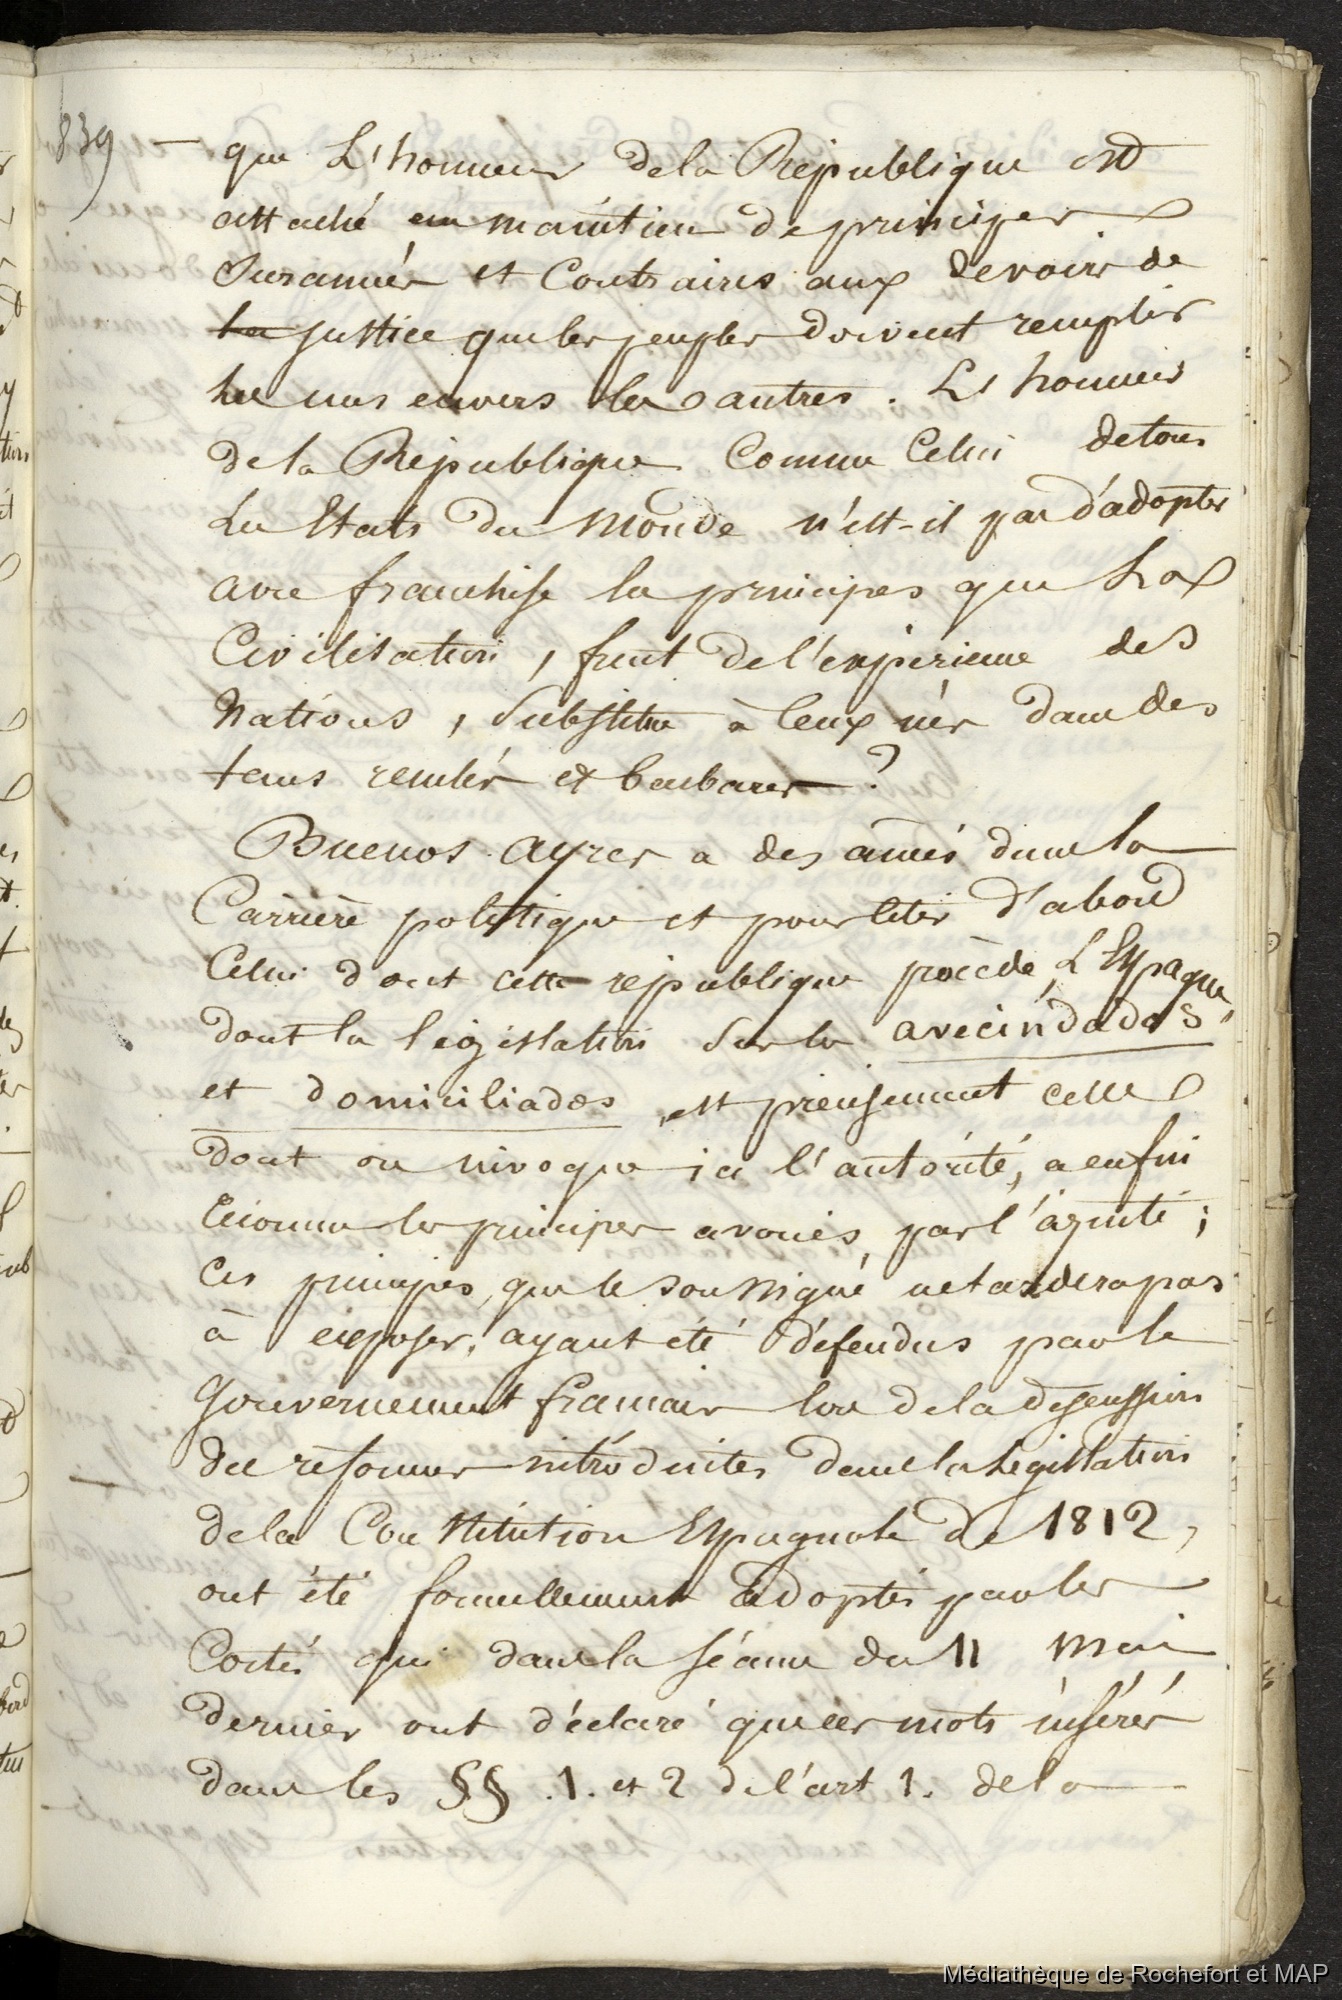 839
que L'honneur de la République est
attaché au maintien de principes
surannés et Contraires aux devoirs de
la justice que les peuples doivent remplir
les uns envers les autres. L'honneur
de la République Comme Celui de tous
Les Etats du Monde n'est-il pas d'adopter
avec franchise les principes que La
Civilisation, fruit de l'expérience des
Nations, substitue à Ceux nés dans des
tems reculés et barbares ?
Buenos ayres a des ainés dans la
Carrière politique et pour Citer d'abord
Celui dont cette république procède, L'Espagne,
dont la législation sur les avecindados
et domiciliados, est précisément celle
dont on invoque ici l'autorité, a enfin
reconnu les principes avoués par l'équité ;
Ces principes, que le soussigné ne tardera pas
à exposer, ayant été défendus par le
Gouvernement français lors de la discussion
des réformes introduites dans la Législation
de la Constitution Espagnole de 1812,
ont été formellement adoptés par les
Cortès qui dans la séance du 11 Mai
dernier ont déclaré que ces mots insérés
dans les §§ .1. et 2 de l'art 1. de la
Médiathèque de Rochefort et MAP